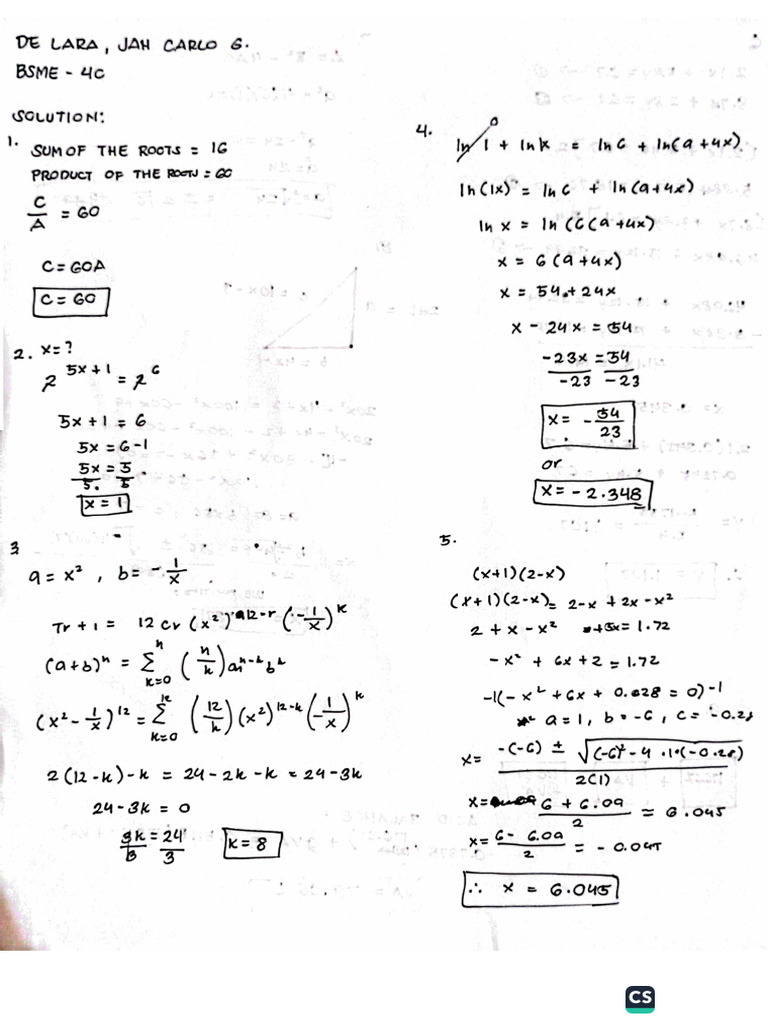 DE LARA, JAH CARLO G.
BSME - 4C
SOLUTION:
1. SUM OF THE ROOTS = 16
PRODUCT OF THE ROOTS = 60
C/A = 60
C = 60A
C = 60
2. x = ?
2^(5x+1) = 2^6
5x + 1 = 6
5x = 6-1
5x/5 = 5/5
x = 1
3
a = x², b = -1/x
Tr+1 = 12Cr (x²)^(12-r) (-1/x)^k
(a+b)^n = Σ k=0 n (n/k) a^(n-k) b^k
(x² - 1/x)^12 = Σ k=0 12 (12/k) (x²)^(12-k) (-1/x)^k
2(12-k)-k = 24-2k-k = 24-3k
24-3k = 0
3k/3 = 24/3 k = 8
4. ln 1 0 + ln x = ln 6 + ln(9+4x)
ln(1x) = ln 6 + ln(9+4x)
ln x = ln(6(9+4x)
x = 6(9+4x)
x = 54 + 24x
x - 24x = 54
-23x/-23 = 54/-23
x = -54/23
or
x = -2.348
5.
(x+1)(2-x)
(x+1)(2-x) = 2-x+2x-x²
2 + x - x² +5x = 1.72
-x² + 6x + 2 = 1.72
-1(-x² + 6x + 0.28 = 0)-1
a = 1, b = -6, c = -0.28
x = -(-6) ± √((-6)²-4·1·(-0.28)) / 2(1)
x = 6 + 6.09 / 2 = 6.045
x = 6 - 6.09 / 2 = -0.045
∴ x = 6.045
CS